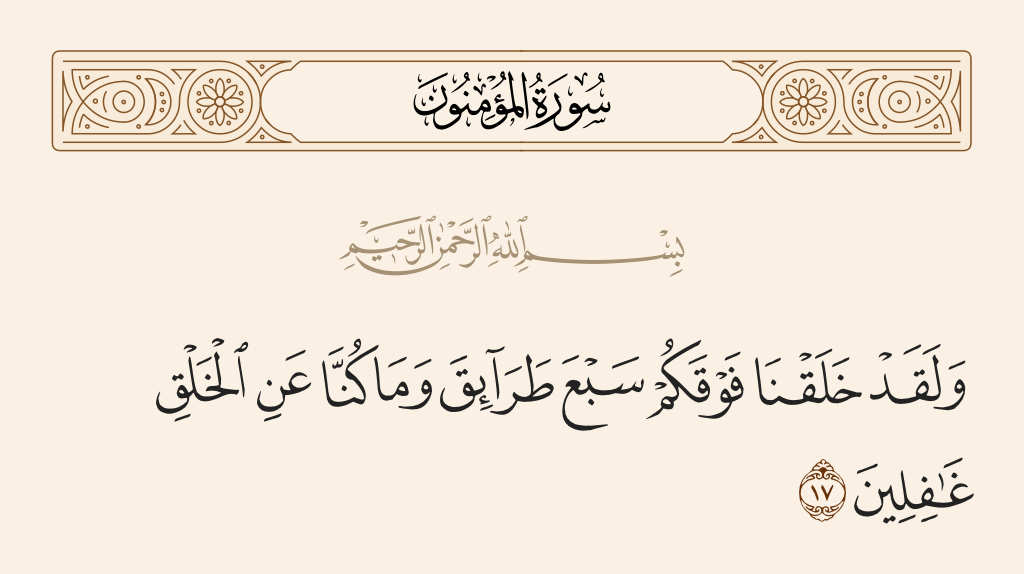 سُورَةُ الْمُؤْمِنُونَ
بِسْمِ ٱللَّهِ ٱلرَّحْمَٰنِ ٱلرَّحِيمِ
وَلَقَدْ خَلَقْنَا فَوْقَكُمْ سَبْعَ طَرَآئِقَ وَمَا كُنَّا عَنِ ٱلْخَلْقِ
غَٰفِلِينَ ١٧